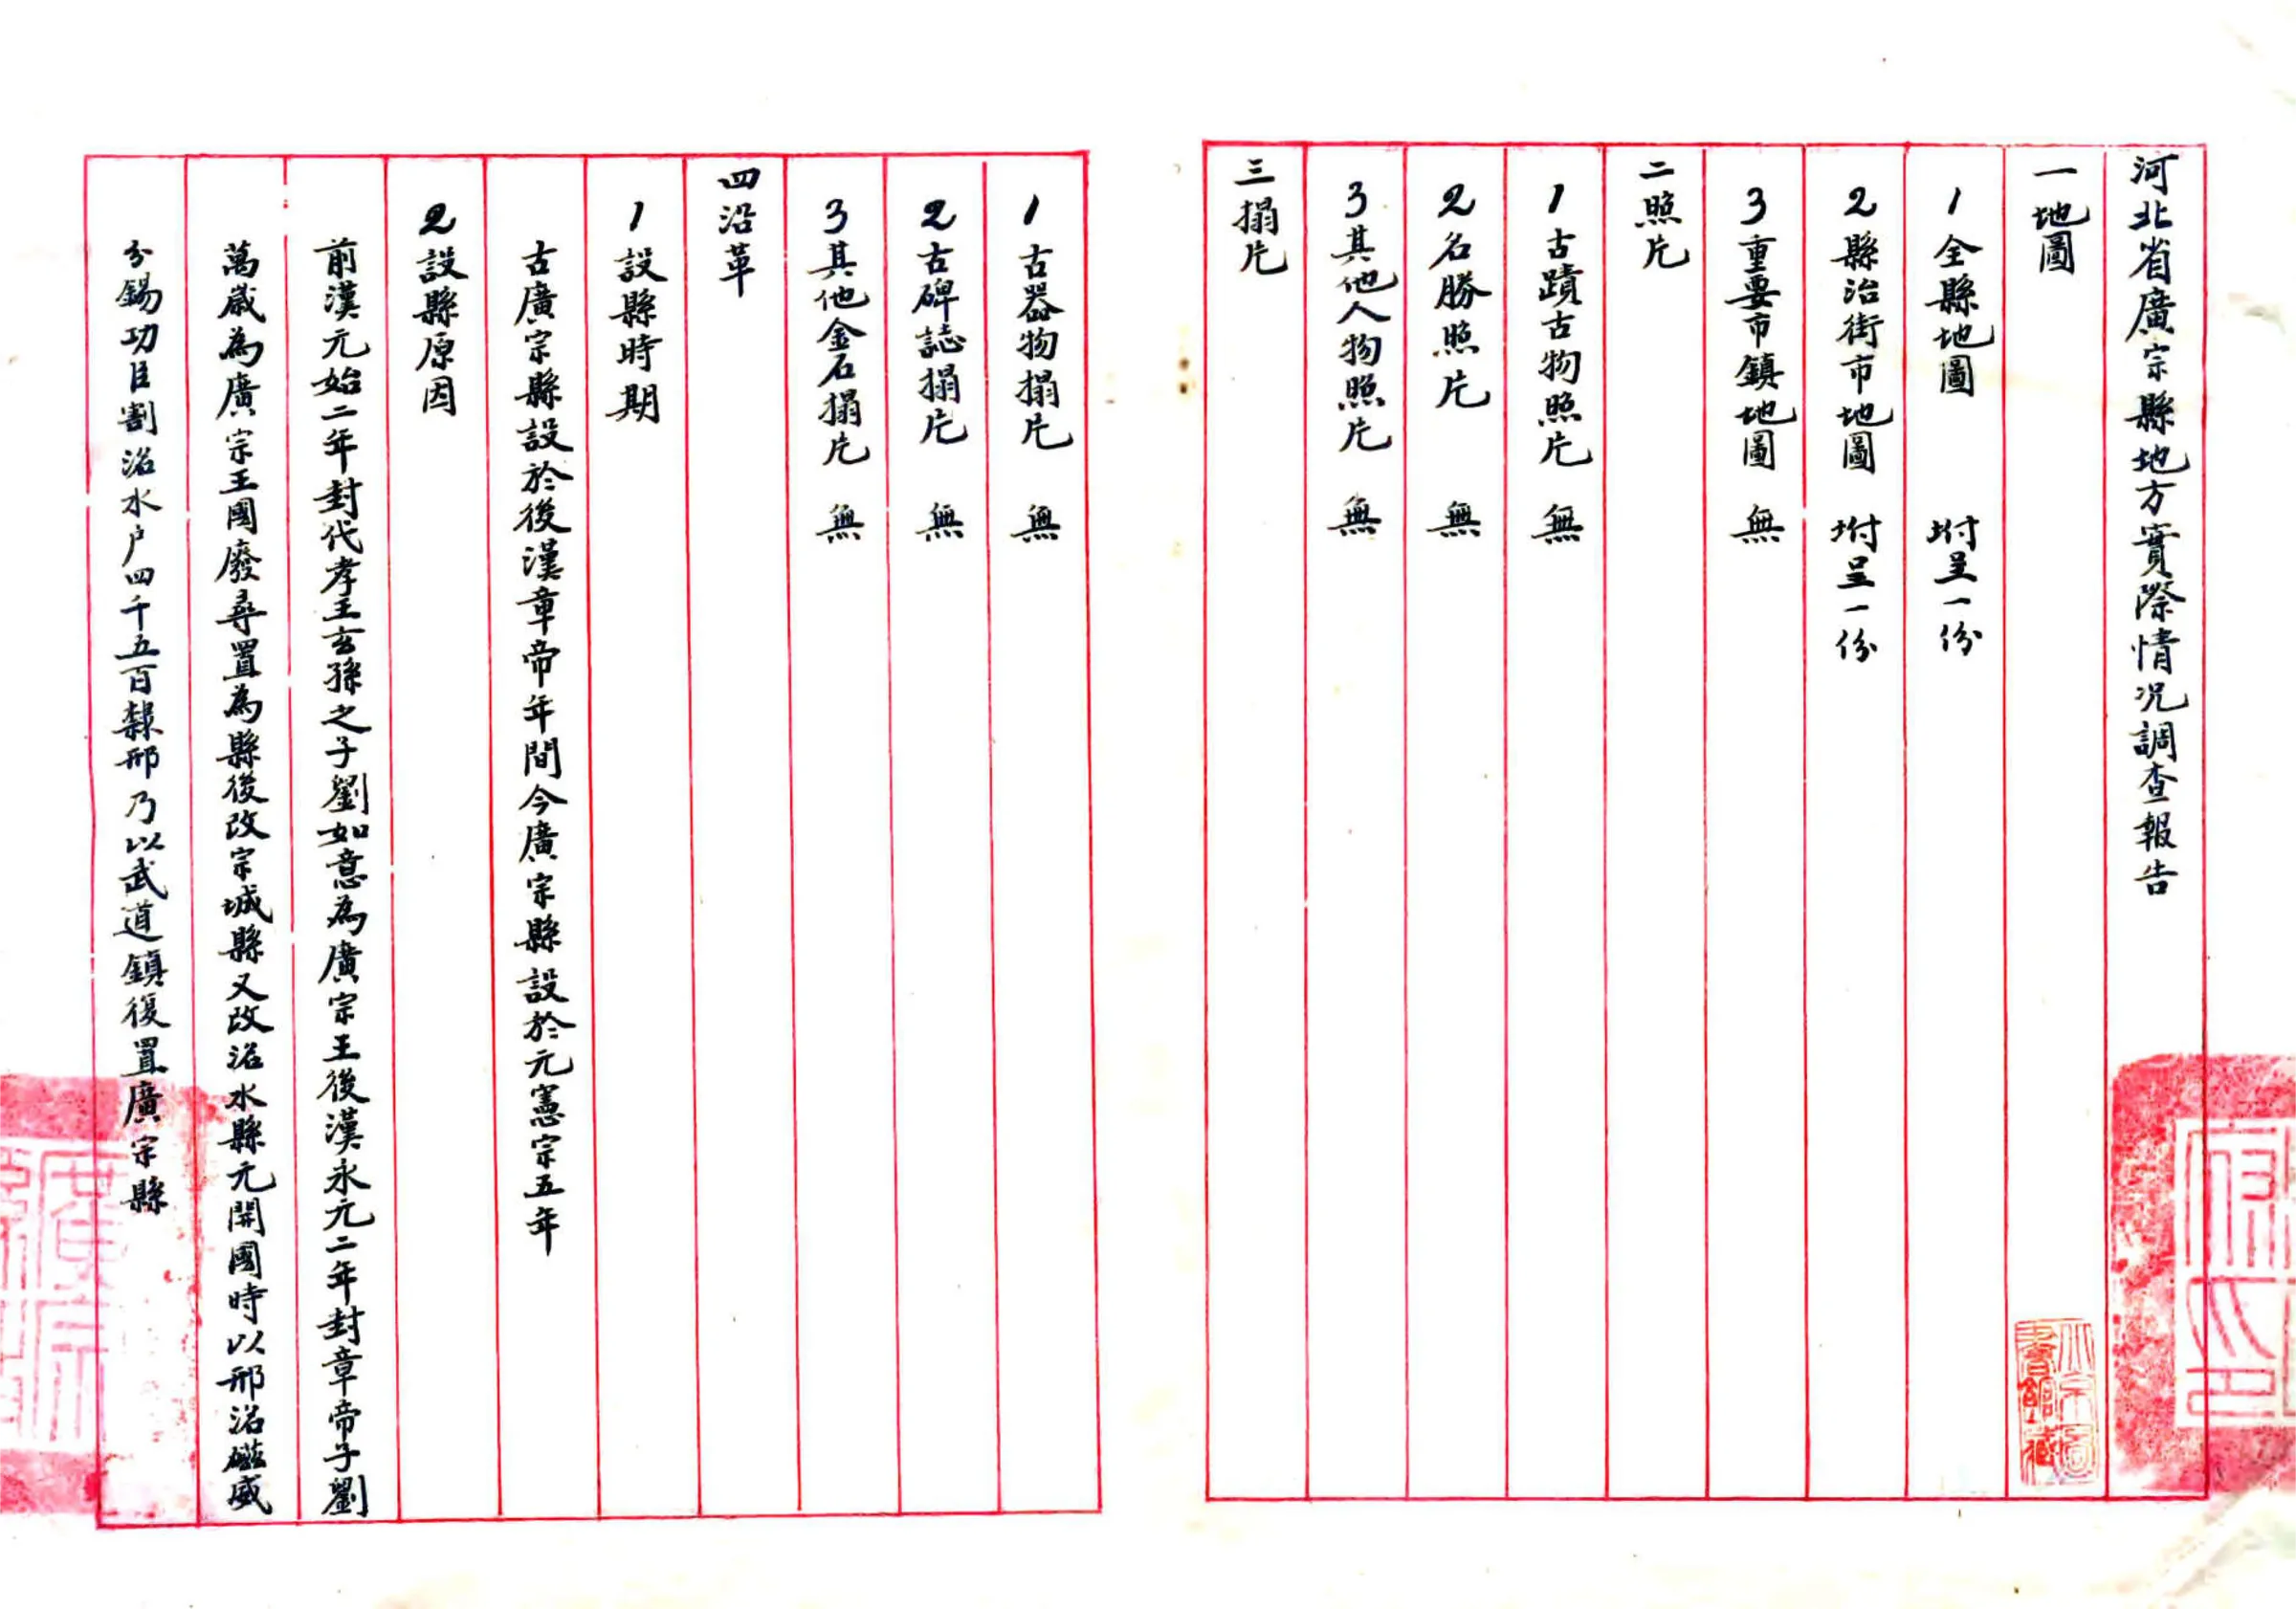 河北省廣宗縣地方實際情况調查報告
一地圖
1全縣地圖 坿呈一份
2縣治街市地圖 坿呈一份
3重要市鎮地圖 無
二照片
1古蹟古物照片 無
2名勝照片 無
3其他人物照片 無
三搨片
1古器物搨片 無
2古碑誌搨片 無
3其他金石搨片 無
四沿革
1設縣時期
古廣宗縣設於後漢章帝年間今廣宗縣設於元憲宗五年
2設縣原因
前漢元始二年封代孝王玄孫之子劉如意為廣宗王後漢永元二年封章帝子劉
萬歲為廣宗王國廢尋置為縣後改宗城縣又改洺水縣元開國時以邢洺磁威
分錫功臣割洺水户四千五百隸邢乃以武道鎮復置廣宗縣